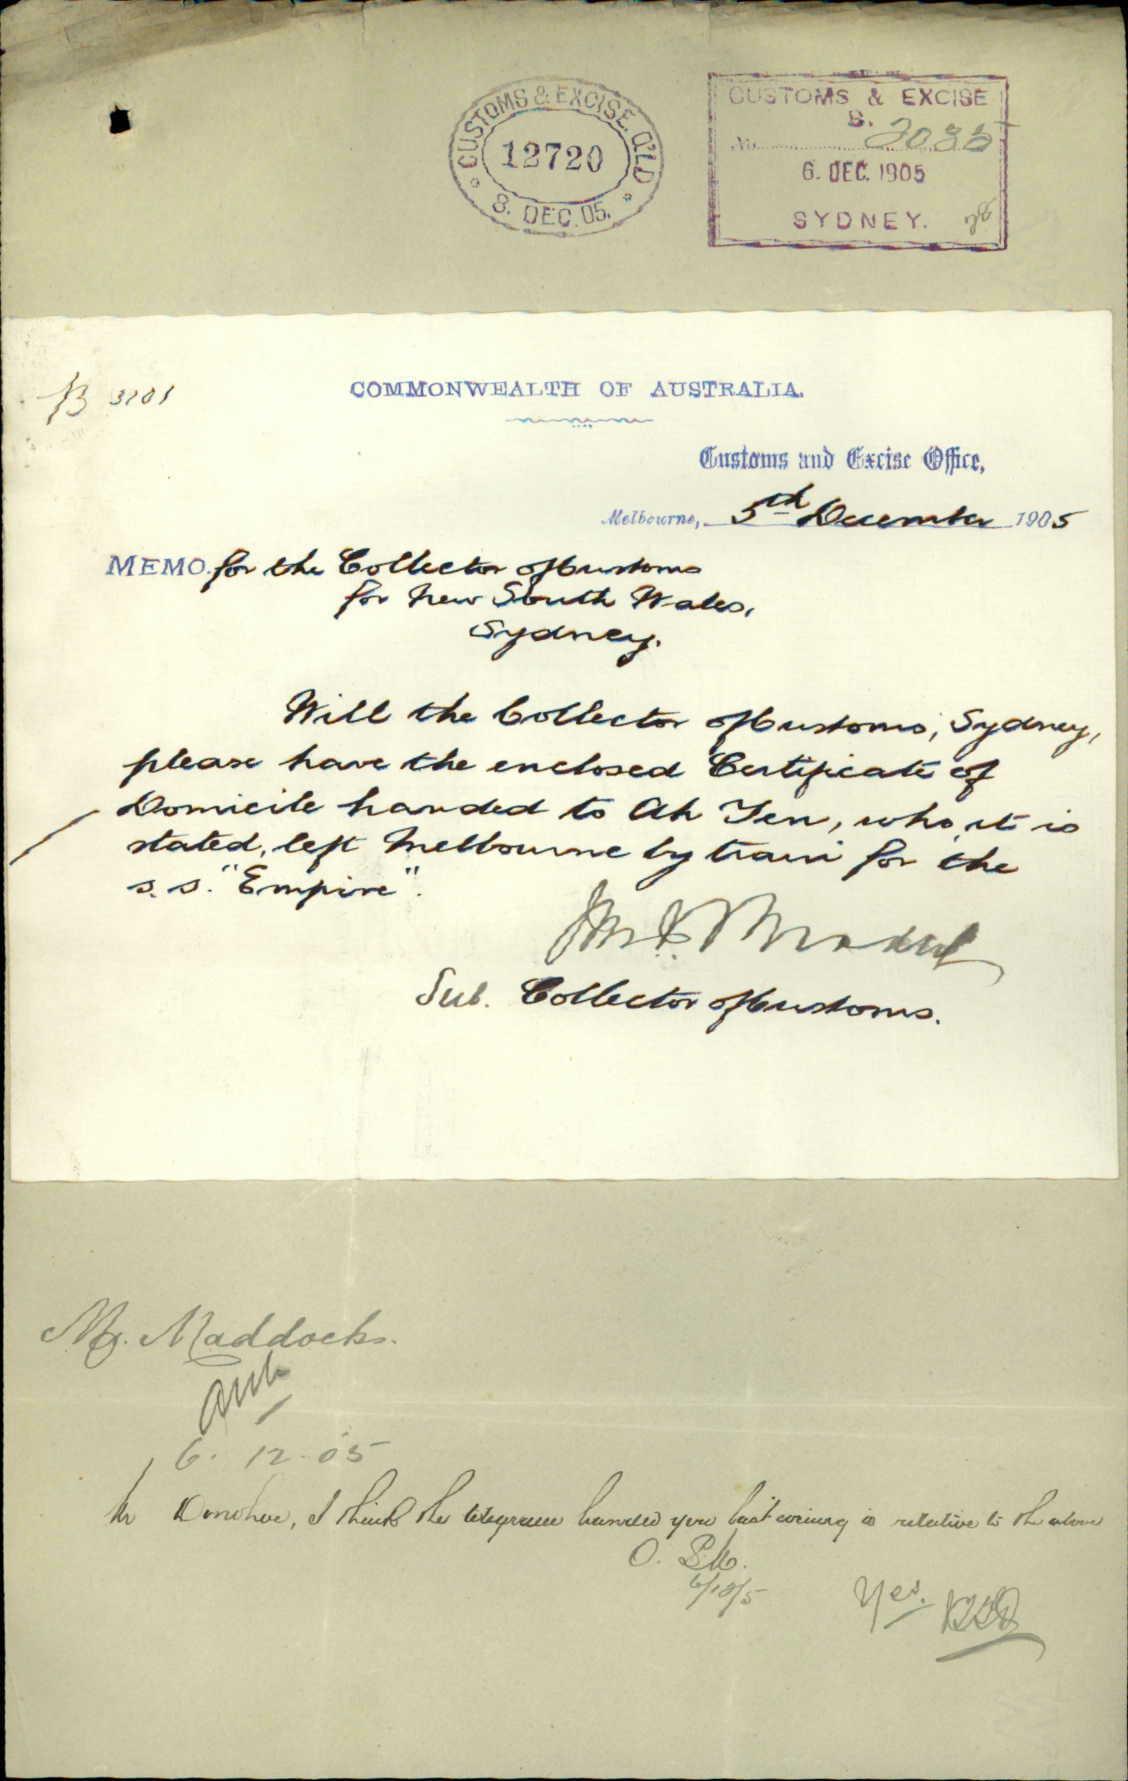 CUSTOMS & EXCISE. Q'LD
12720
8. DEC. 05.
CUSTOMS & EXCISE
S.
No. 2035
6. DEC. 1905
SYDNEY.
B 3201
COMMONWEALTH OF AUSTRALIA.
Customs and Excise Office,
Melbourne, 5th December 1905
MEMO. for the Collector of Customs
for New South Wales,
Sydney.
Will the Collector of Customs, Sydney,
please have the enclosed Certificate of
Domicile handed to Ah Yen, who, it is
stated, left Melbourne by train for the
s.s. "Empire".
Sub. Collector of Customs.
Mr. Maddocks.
6. 12. 05
Mr Donohue, I think the telegram handed you last evening is relative to the above
6/12/5
Yes.